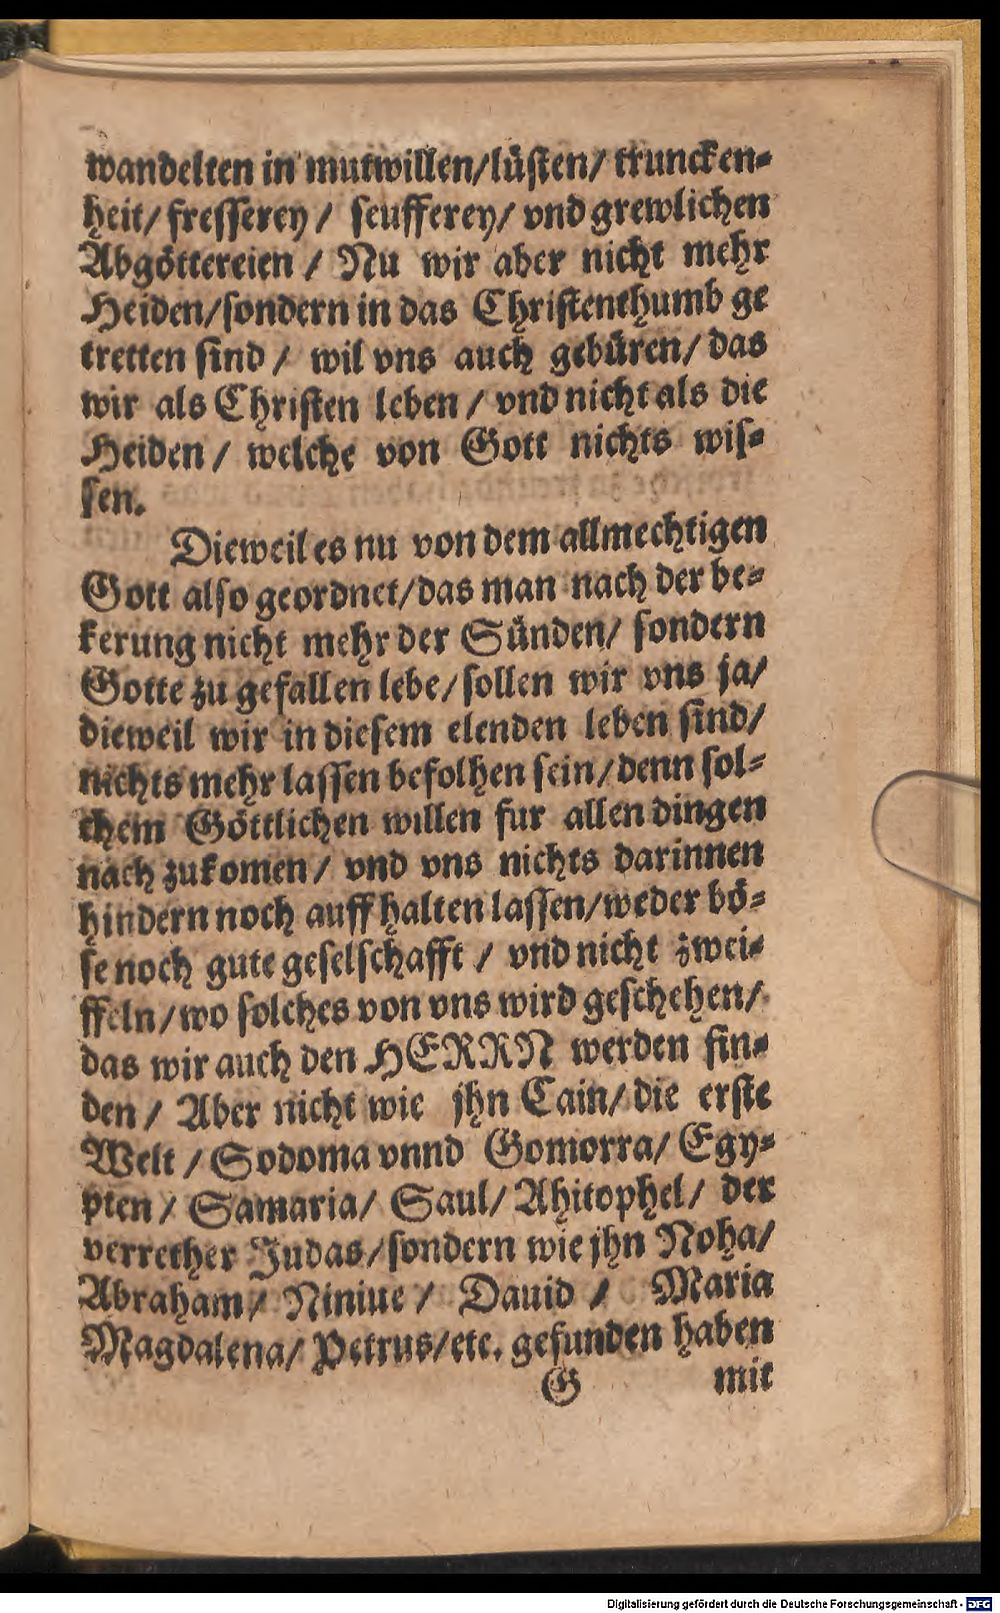 wandelten in mutwillen/lüsten/ truncken-
heit/ fresserey/ seufferey/ vnd grewlichen
Abgöttereien / Nu wir aber nicht mehr
Heiden/sondern in das Christenthumb ge
tretten sind / wil vns auch gebüren/ das
wir als Christen leben / vnd nicht als die
Heiden / welche von Gott nichts wis-
sen.
Dieweil es nu von dem allmechtigen
Gott also geordnet/das man nach der be-
kerung nicht mehr der Sünden/ sondern
Gotte zu gefallen lebe/sollen wir vns ja/
dieweil wir in diesem elenden leben sind/
nichts mehr lassen befolhen sein/denn sol-
chem Göttlichen willen fur allen dingen
nach zukomen/ vnd vns nichts darinnen
hindern noch auffhalten lassen/weder bö-
se noch gute geselschafft / vnd nicht zwei-
ffeln/wo solches von vns wird geschehen/
das wir auch den HERRN werden fin-
den / Aber nicht wie jhn Cain/ die erste
Welt / Sodoma vnnd Gomorra/ Egy-
pten / Samaria/ Saul/ Ahitophel/ der
verrether Judas/sondern wie jhn Noha/
Abraham/ Niniue / Dauid / Maria
Magdalena/ Petrus/etc. gefunden haben
G mit
Digitalisierung gefördert durch die Deutsche Forschungsgemeinschaft - DFG